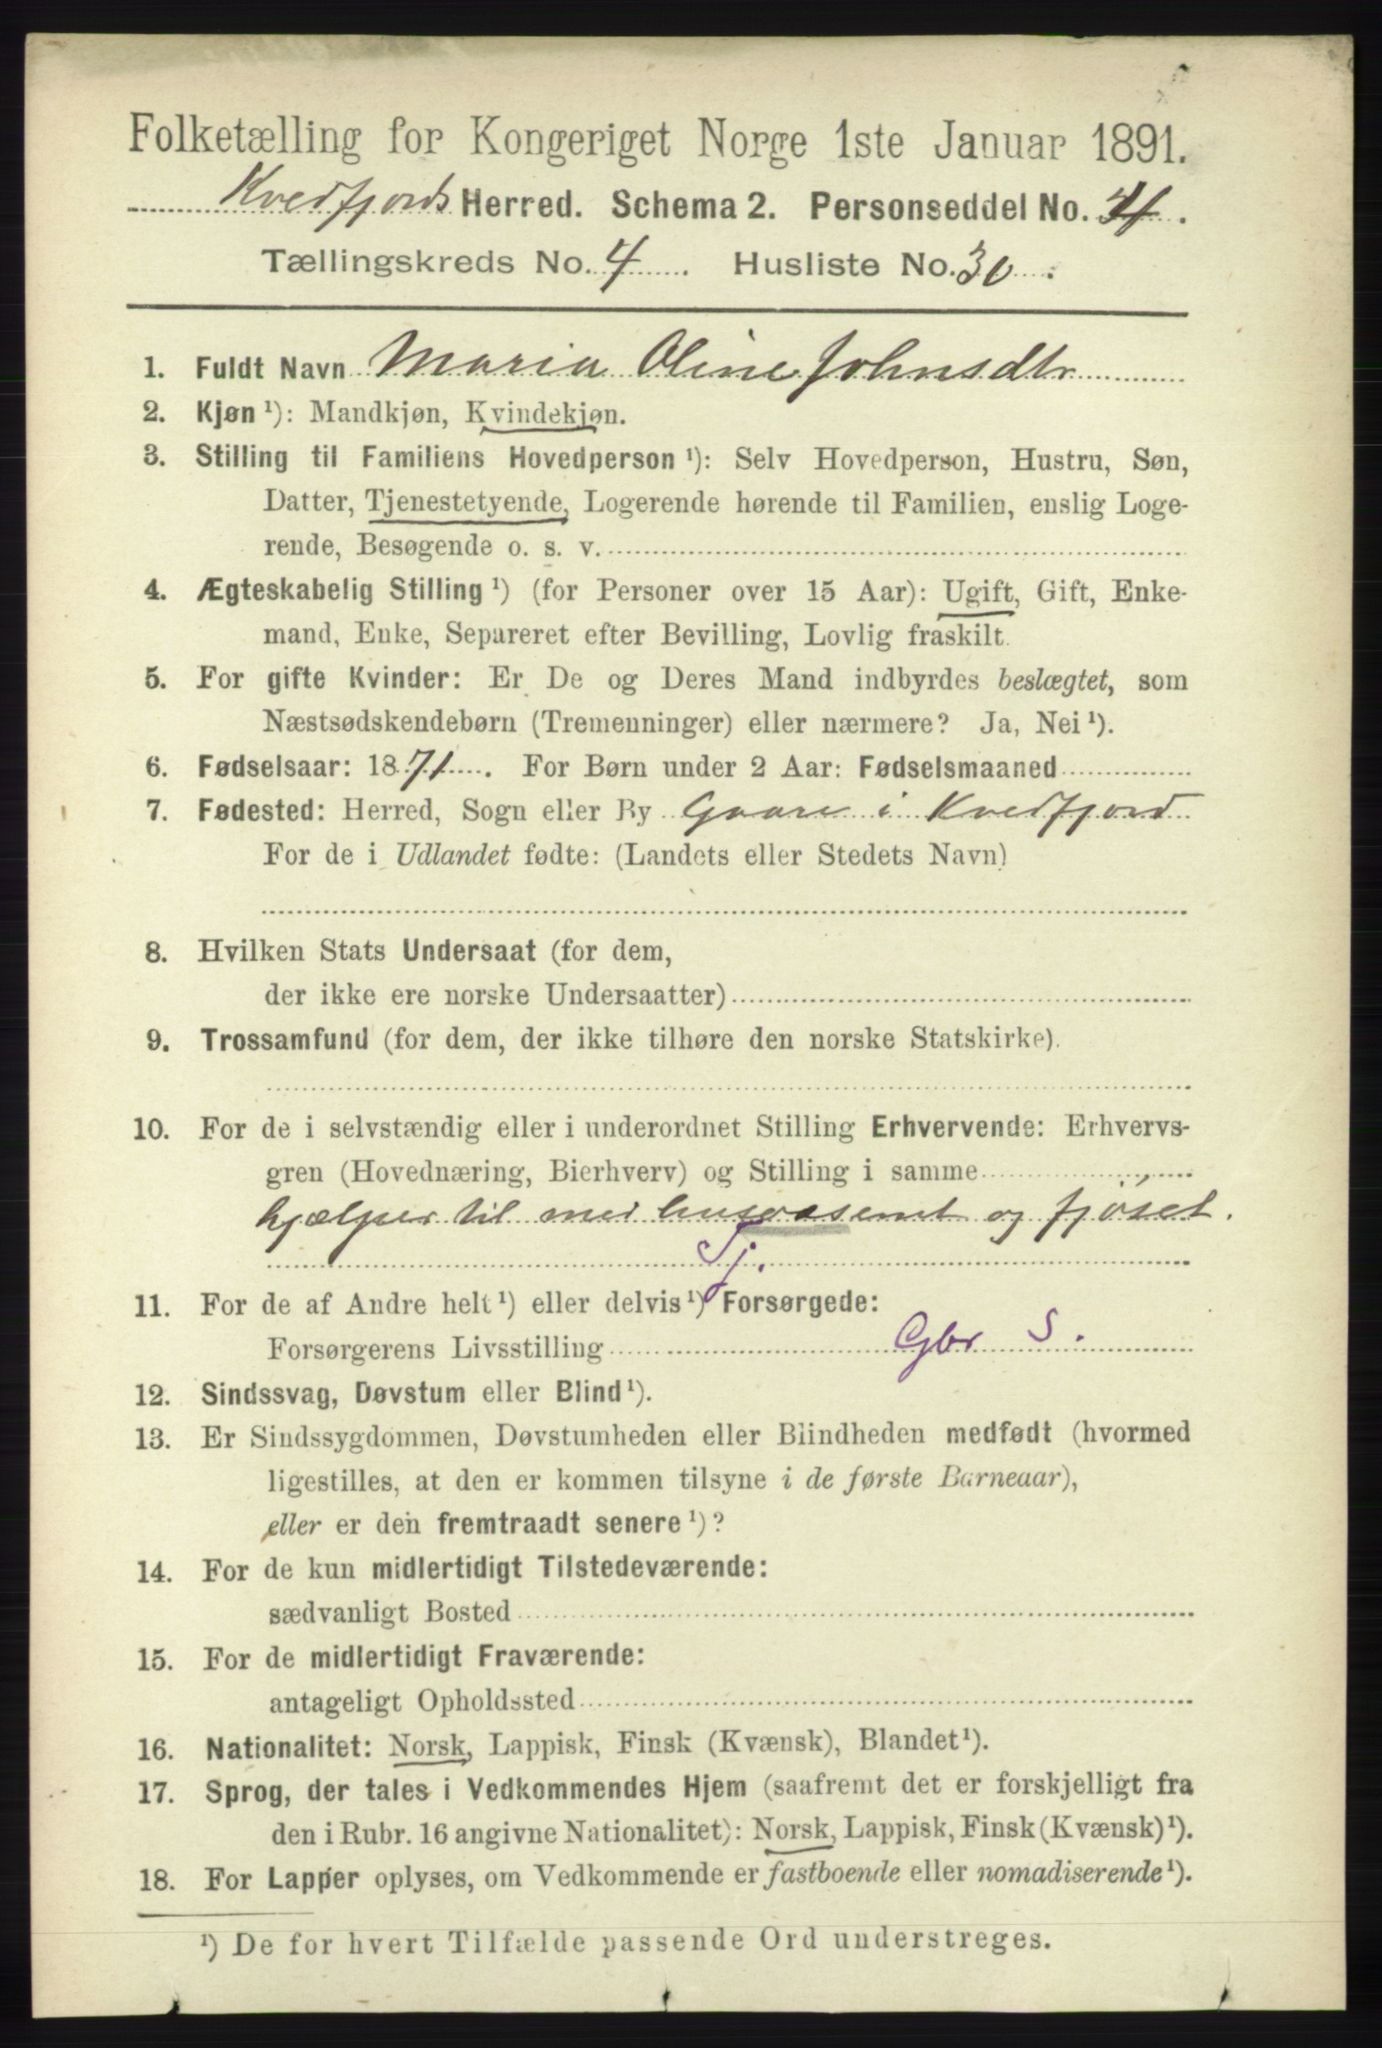 Folketælling for Kongeriget Norge 1ste Januar 1891.
Kvedfjords Herred. Schema 2. Personseddel No.
Tællingskreds No. 4 Husliste No. 30.
1. Fuldt Navn Maria Oline Johnsdtr
2. Kjøn ¹): Mandkjøn, Kvindekjøn.
3. Stilling til Familiens Hovedperson ¹): Selv Hovedperson, Hustru, Søn,
Datter, Tjenestetyende, Logerende hørende til Familien, enslig Loge-
rende, Besøgende o. s. v.
4. Ægteskabelig Stilling ¹) (for Personer over 15 Aar): Ugift, Gift, Enke-
mand, Enke, Separeret efter Bevilling, Lovlig fraskilt.
5. For gifte Kvinder: Er De og Deres Mand indbyrdes beslægtet, som
Næstsødskendebørn (Tremenninger) eller nærmere? Ja, Nei ¹).
6. Fødselsaar: 1871. For Børn under 2 Aar: Fødselsmaaned
7. Fødested: Herred, Sogn eller By Gaare i Kvedfjord
For de i Udlandet fødte: (Landets eller Stedets Navn)
8. Hvilken Stats Undersaat (for dem,
der ikke ere norske Undersaatter)
9. Trossamfund (for dem, der ikke tilhøre den norske Statskirke).
10. For de i selvstændig eller i underordnet Stilling Erhvervende: Erhvervs-
gren (Hovednæring, Bierhverv) og Stilling i samme
hjælper til med husvæsenet og fjöset.
Tj.
11. For de af Andre helt ¹) eller delvis ¹) Forsørgede:
Forsørgerens Livsstilling Gbr S.
12. Sindssvag, Døvstum eller Blind ¹).
13. Er Sindssygdommen, Døvstumheden eller Blindheden medfødt (hvormed
ligestilles, at den er kommen tilsyne i de første Barneaar),
eller er den fremtraadt senere ¹)?
14. For de kun midlertidigt Tilstedeværende:
sædvanligt Bosted
15. For de midlertidigt Fraværende:
antageligt Opholdssted
16. Nationalitet: Norsk, Lappisk, Finsk (Kvænsk), Blandet ¹).
17. Sprog, der tales i Vedkommendes Hjem (saafremt det er forskjelligt fra
den i Rubr. 16 angivne Nationalitet): Norsk, Lappisk, Finsk (Kvænsk) ¹).
18. For Lapper oplyses, om Vedkommende er fastboende eller nomadiserende ¹).
¹) De for hvert Tilfælde passende Ord understreges.